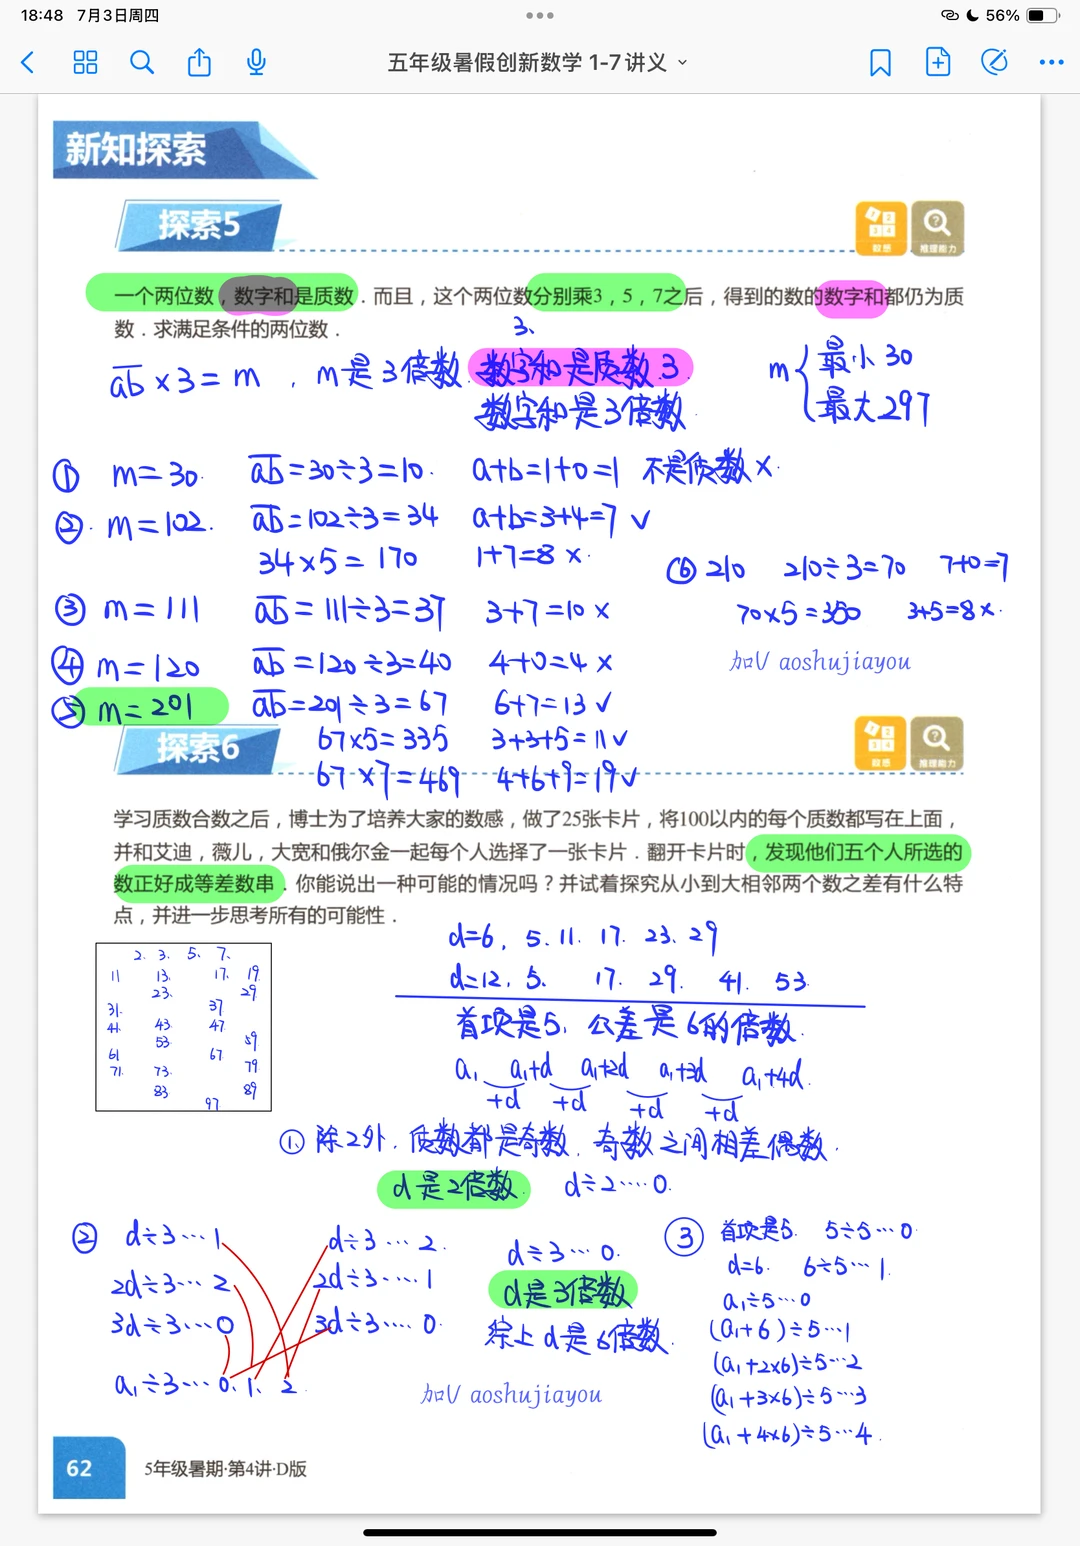 18:48 7月3日周四
56%
五年级暑假创新数学 1-7 讲义
新知探索
探索5
数感
推理能力
一个两位数，数字和是质数．而且，这个两位数分别乘3，5，7之后，得到的数的数字和都仍为质
数．求满足条件的两位数．
3、
ab × 3 = m ，m是3倍数. 数字和是质数.3
数字和是3倍数
m { 最小30
最大297
① m=30. ab=30÷3=10. a+b=1+0=1 不是质数×.
②. m=102. ab=102÷3=34 a+b=3+4=7 ✓
34×5=170 1+7=8 ×.
⑥ 210 210÷3=70 7+0=7
③ m=111 ab=111÷3=37 3+7=10 ×
70×5=350 3+5=8 ×.
④ m=120 ab=120÷3=40 4+0=4 ×
加V aoshujiayou
⑤ m=201 ab=201÷3=67 6+7=13 ✓
67×5=335 3+3+5=11 ✓
67×7=469 4+6+9=19 ✓
探索6
数感
推理能力
学习质数合数之后，博士为了培养大家的数感，做了25张卡片，将100以内的每个质数都写在上面，
并和艾迪，薇儿，大宽和俄尔金一起每个人选择了一张卡片．翻开卡片时，发现他们五个人所选的
数正好成等差数串．你能说出一种可能的情况吗？并试着探究从小到大相邻两个数之差有什么特
点，并进一步思考所有的可能性．
2. 3. 5. 7.
11 13. 17. 19.
23. 29.
31. 37
41. 43. 47.
53. 59
61 67
71. 73. 79.
83 89
97
d=6, 5. 11. 17. 23. 29
d=12. 5. 17. 29. 41. 53.
首项是5, 公差是6的倍数.
a₁ a₁+d a₁+2d a₁+3d a₁+4d.
+d +d +d +d
①. 除2外. 质数都是奇数. 奇数之间相差偶数.
d是2倍数. d÷2……0.
② d÷3…1 d÷3…2.
2d÷3…2 2d÷3……1
3d÷3…0 3d÷3……0.
a₁÷3…0. 1. 2.
d÷3…0.
d是3倍数
综上 d是6倍数.
加V aoshujiayou
③ 首项是5. 5÷5…0
d=6. 6÷5…1.
a₁÷5…0
(a₁+6)÷5…1
(a₁+2×6)÷5…2
(a₁+3×6)÷5…3
(a₁+4×6)÷5…4.
62
5年级暑期·第4讲·D版